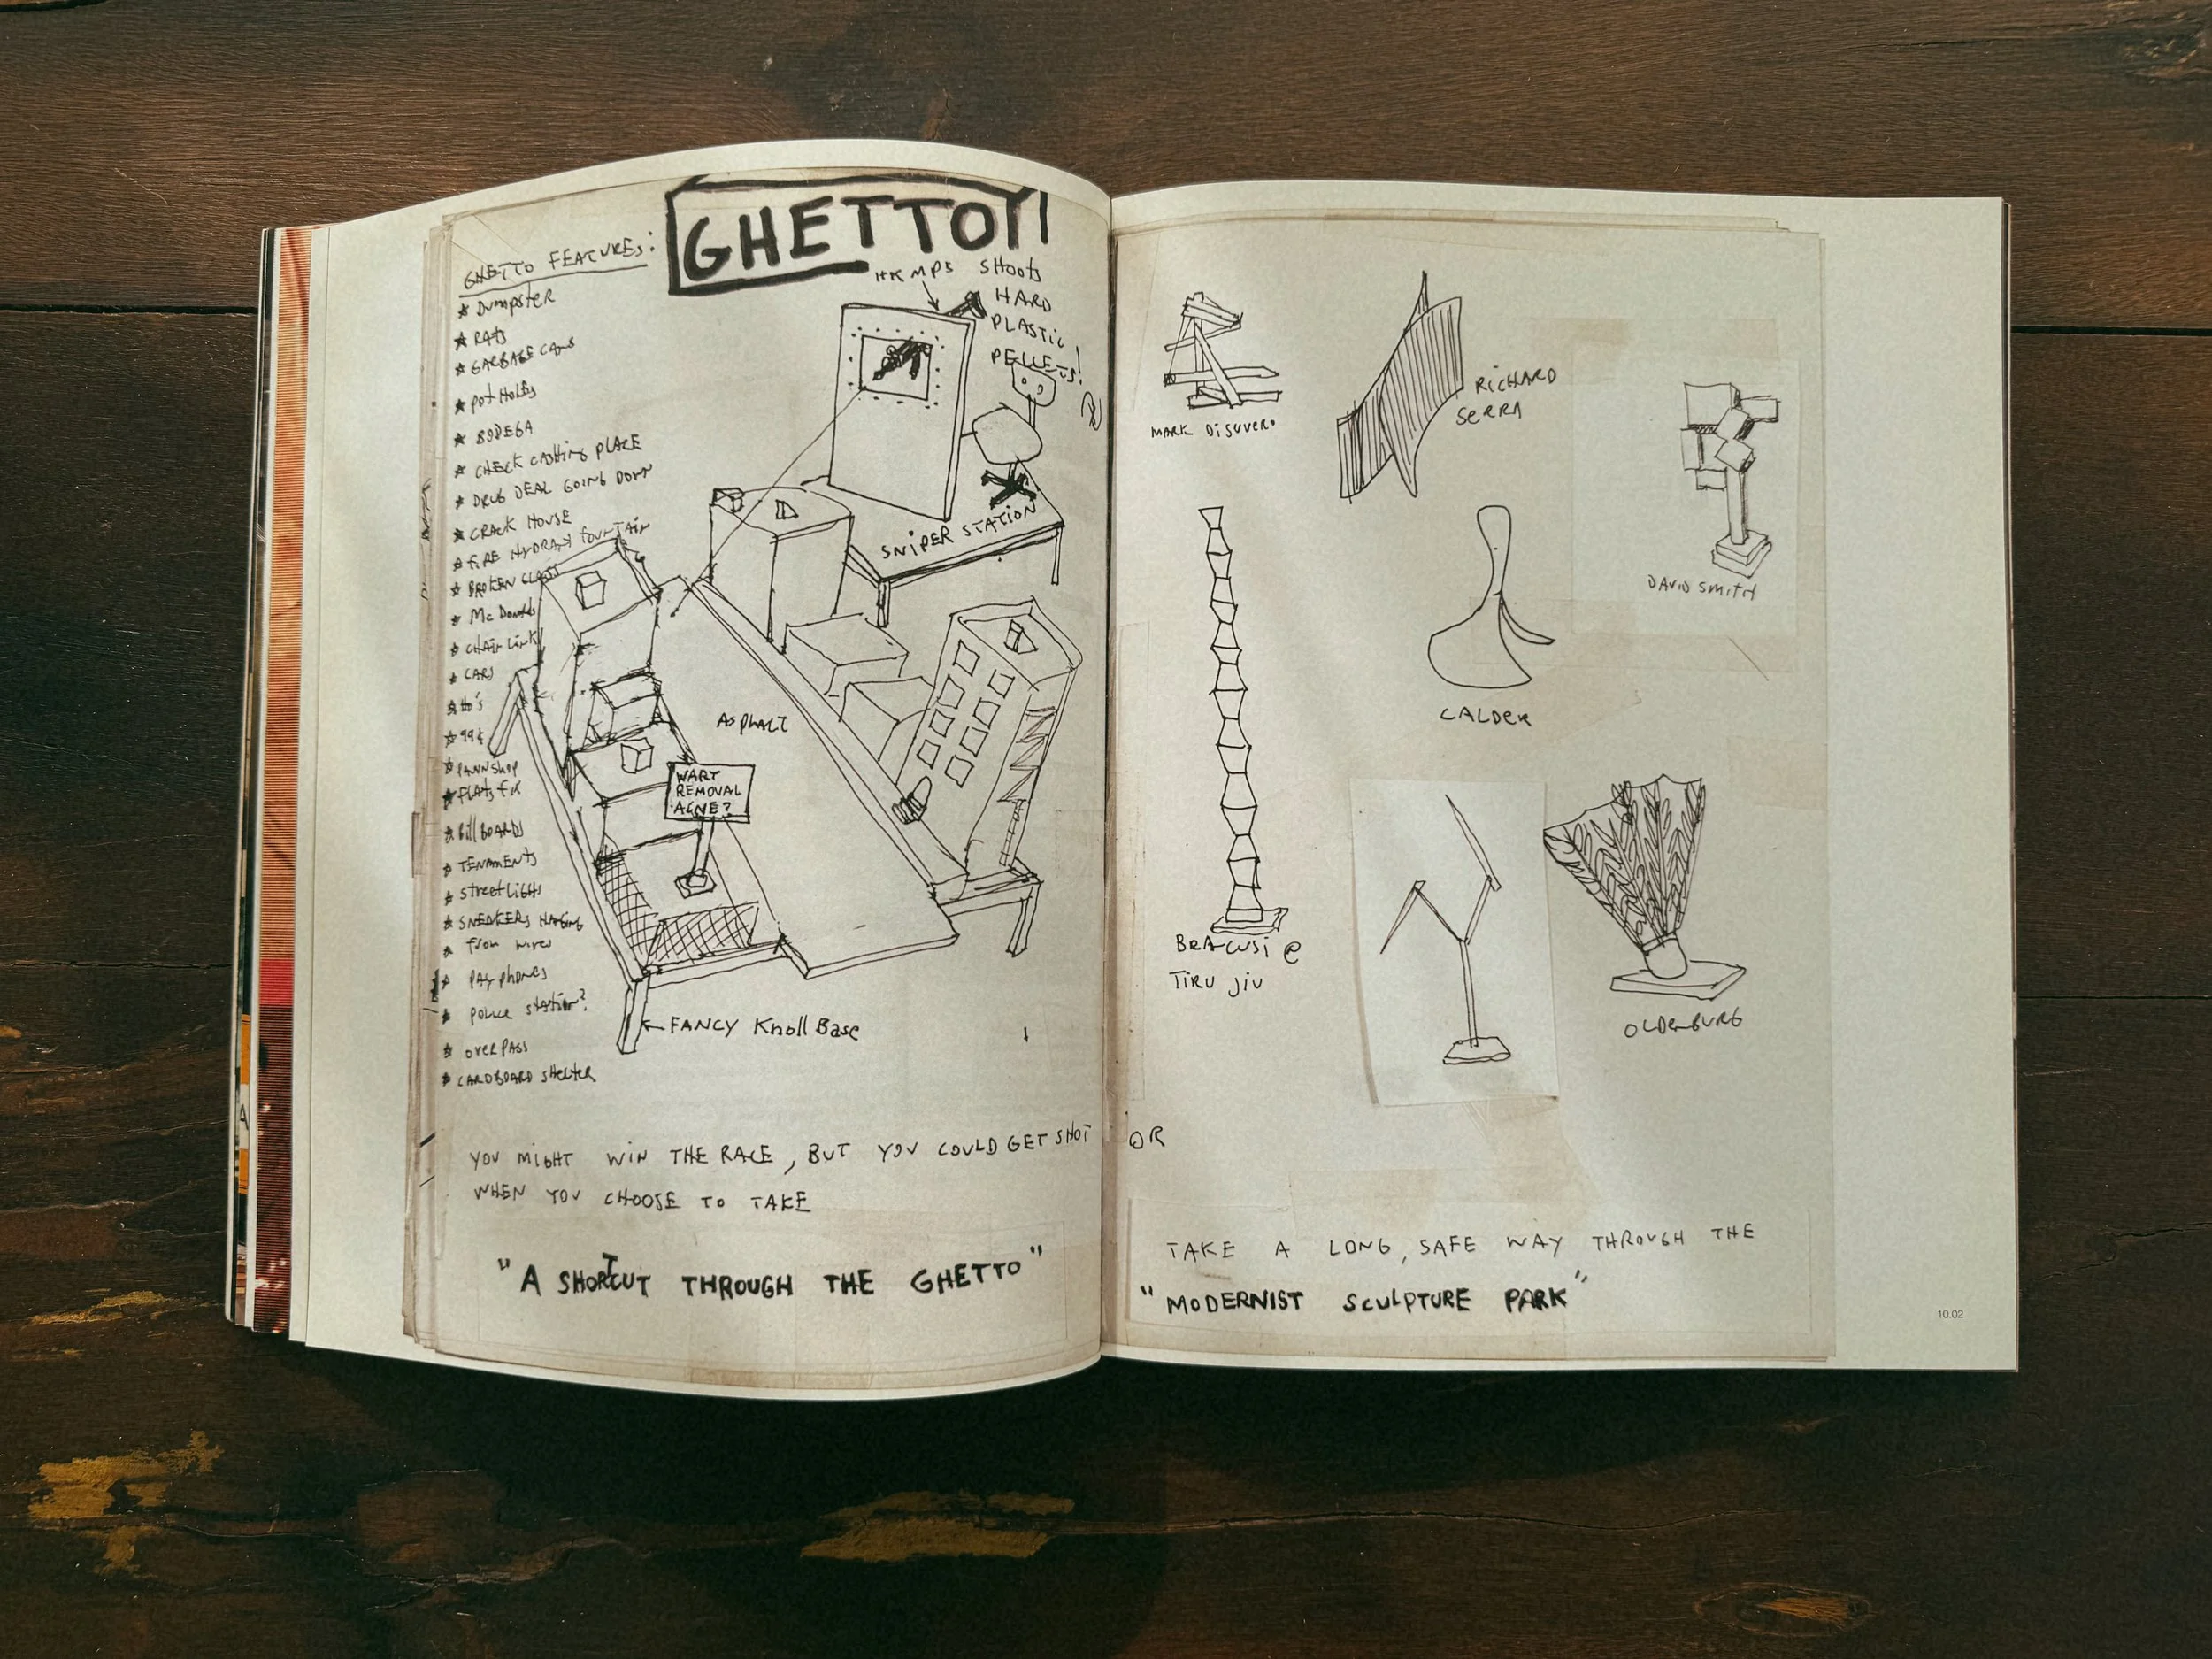 GHETTO!
GHETTO FEATURES:
★ DUMPSTER
★ RATS
★ GARBAGE CANS
★ POT HOLES
★ BODEGA
★ CHECK CASHING PLACE
★ DRUG DEAL GOING DOWN
★ CRACK HOUSE
★ FIRE HYDRANT FOUNTAIN
★ BROKEN GLASS
★ McDonalds
★ CHAIN LINK
★ CARS
★ Ho's
★ 99¢
★ PAWN SHOP
★ FLATS FIX
★ Bill BOARDS
★ TENAMENTS
★ Street Lights
★ SNEAKERS HANGING
★ from wires
★ PAY PHONES
★ Police station?
★ OVERPASS
★ CARDBOARD SHELTER
HK MP5 SHOOTS
HARD
PLASTIC
PELLETS!
SNIPER STATION
ASPHALT
WART
REMOVAL
ACNE?
← FANCY Knoll Base
YOU MIGHT WIN THE RACE, BUT YOU COULD GET SHOT
WHEN YOU CHOOSE TO TAKE
"A SHORTCUT THROUGH THE GHETTO"
MARK DISUVERO
RICHARD
SERRA
DAVID SMITH
CALDER
BRANCUSI @
TIRU JIU
OLDENBURG
OR
TAKE A LONG, SAFE WAY THROUGH THE
"MODERNIST SCULPTURE PARK"
10.02